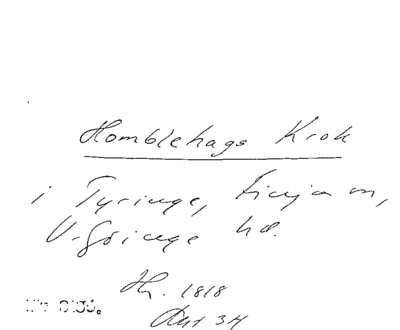 Homblehags Krok
i Tyringe, Finja sn,
V. Göinge hd.
Hy. 1818
Akt 34